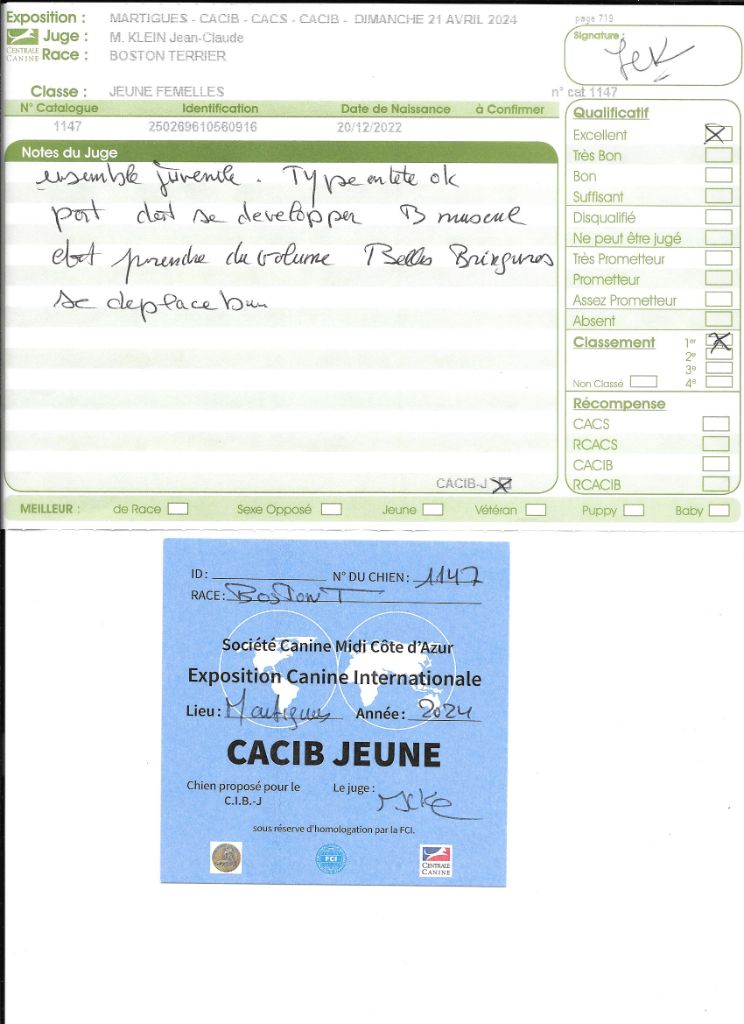 Exposition : MARTIGUES - CACIB - CACS - CACIB - DIMANCHE 21 AVRIL 2024 page 719
Juge : M. KLEIN Jean-Claude
CENTRALE CANINE
Race : BOSTON TERRIER
Signature :
Classe : JEUNE FEMELLES n° cat 1147
N° Catalogue Identification Date de Naissance à Confirmer
1147 250269610560916 20/12/2022
Notes du Juge
ensemble juvenile. Type en tete ok
doit se developper B muscle
doit prendre du volume Belles Bringures
se deplace bien
CACIB-J
Qualificatif
Excellent
Très Bon
Bon
Suffisant
Disqualifié
Ne peut être jugé
Très Prometteur
Prometteur
Assez Prometteur
Absent
Classement 1er
2e
3e
Non Classé 4e
Récompense
CACS
RCACS
CACIB
RCACIB
MEILLEUR : de Race Sexe Opposé Jeune Vétéran Puppy Baby
ID : N° DU CHIEN : 1147
RACE : BOSTON T
Société Canine Midi Côte d'Azur
Exposition Canine Internationale
Lieu : Martigues Année : 2024
CACIB JEUNE
Chien proposé pour le Le juge :
C.I.B.-J
sous réserve d'homologation par la FCI.
FCI
CENTRALE
CANINE